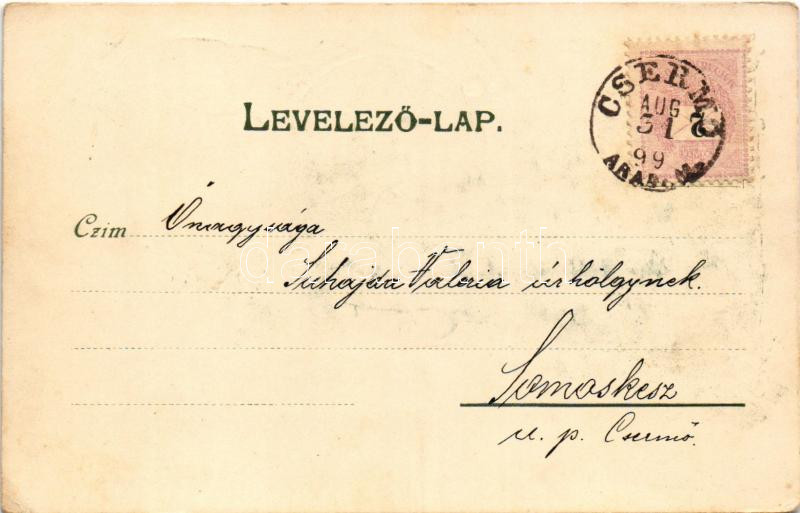 CSERMŐ
AUG
31
99
ARAD M.
2
LEVELEZŐ-LAP.
Czim Őnagysága
Suhajda Valeria úrhölgynek.
darabanth.com
Somoskesz
u. p. Csermő.